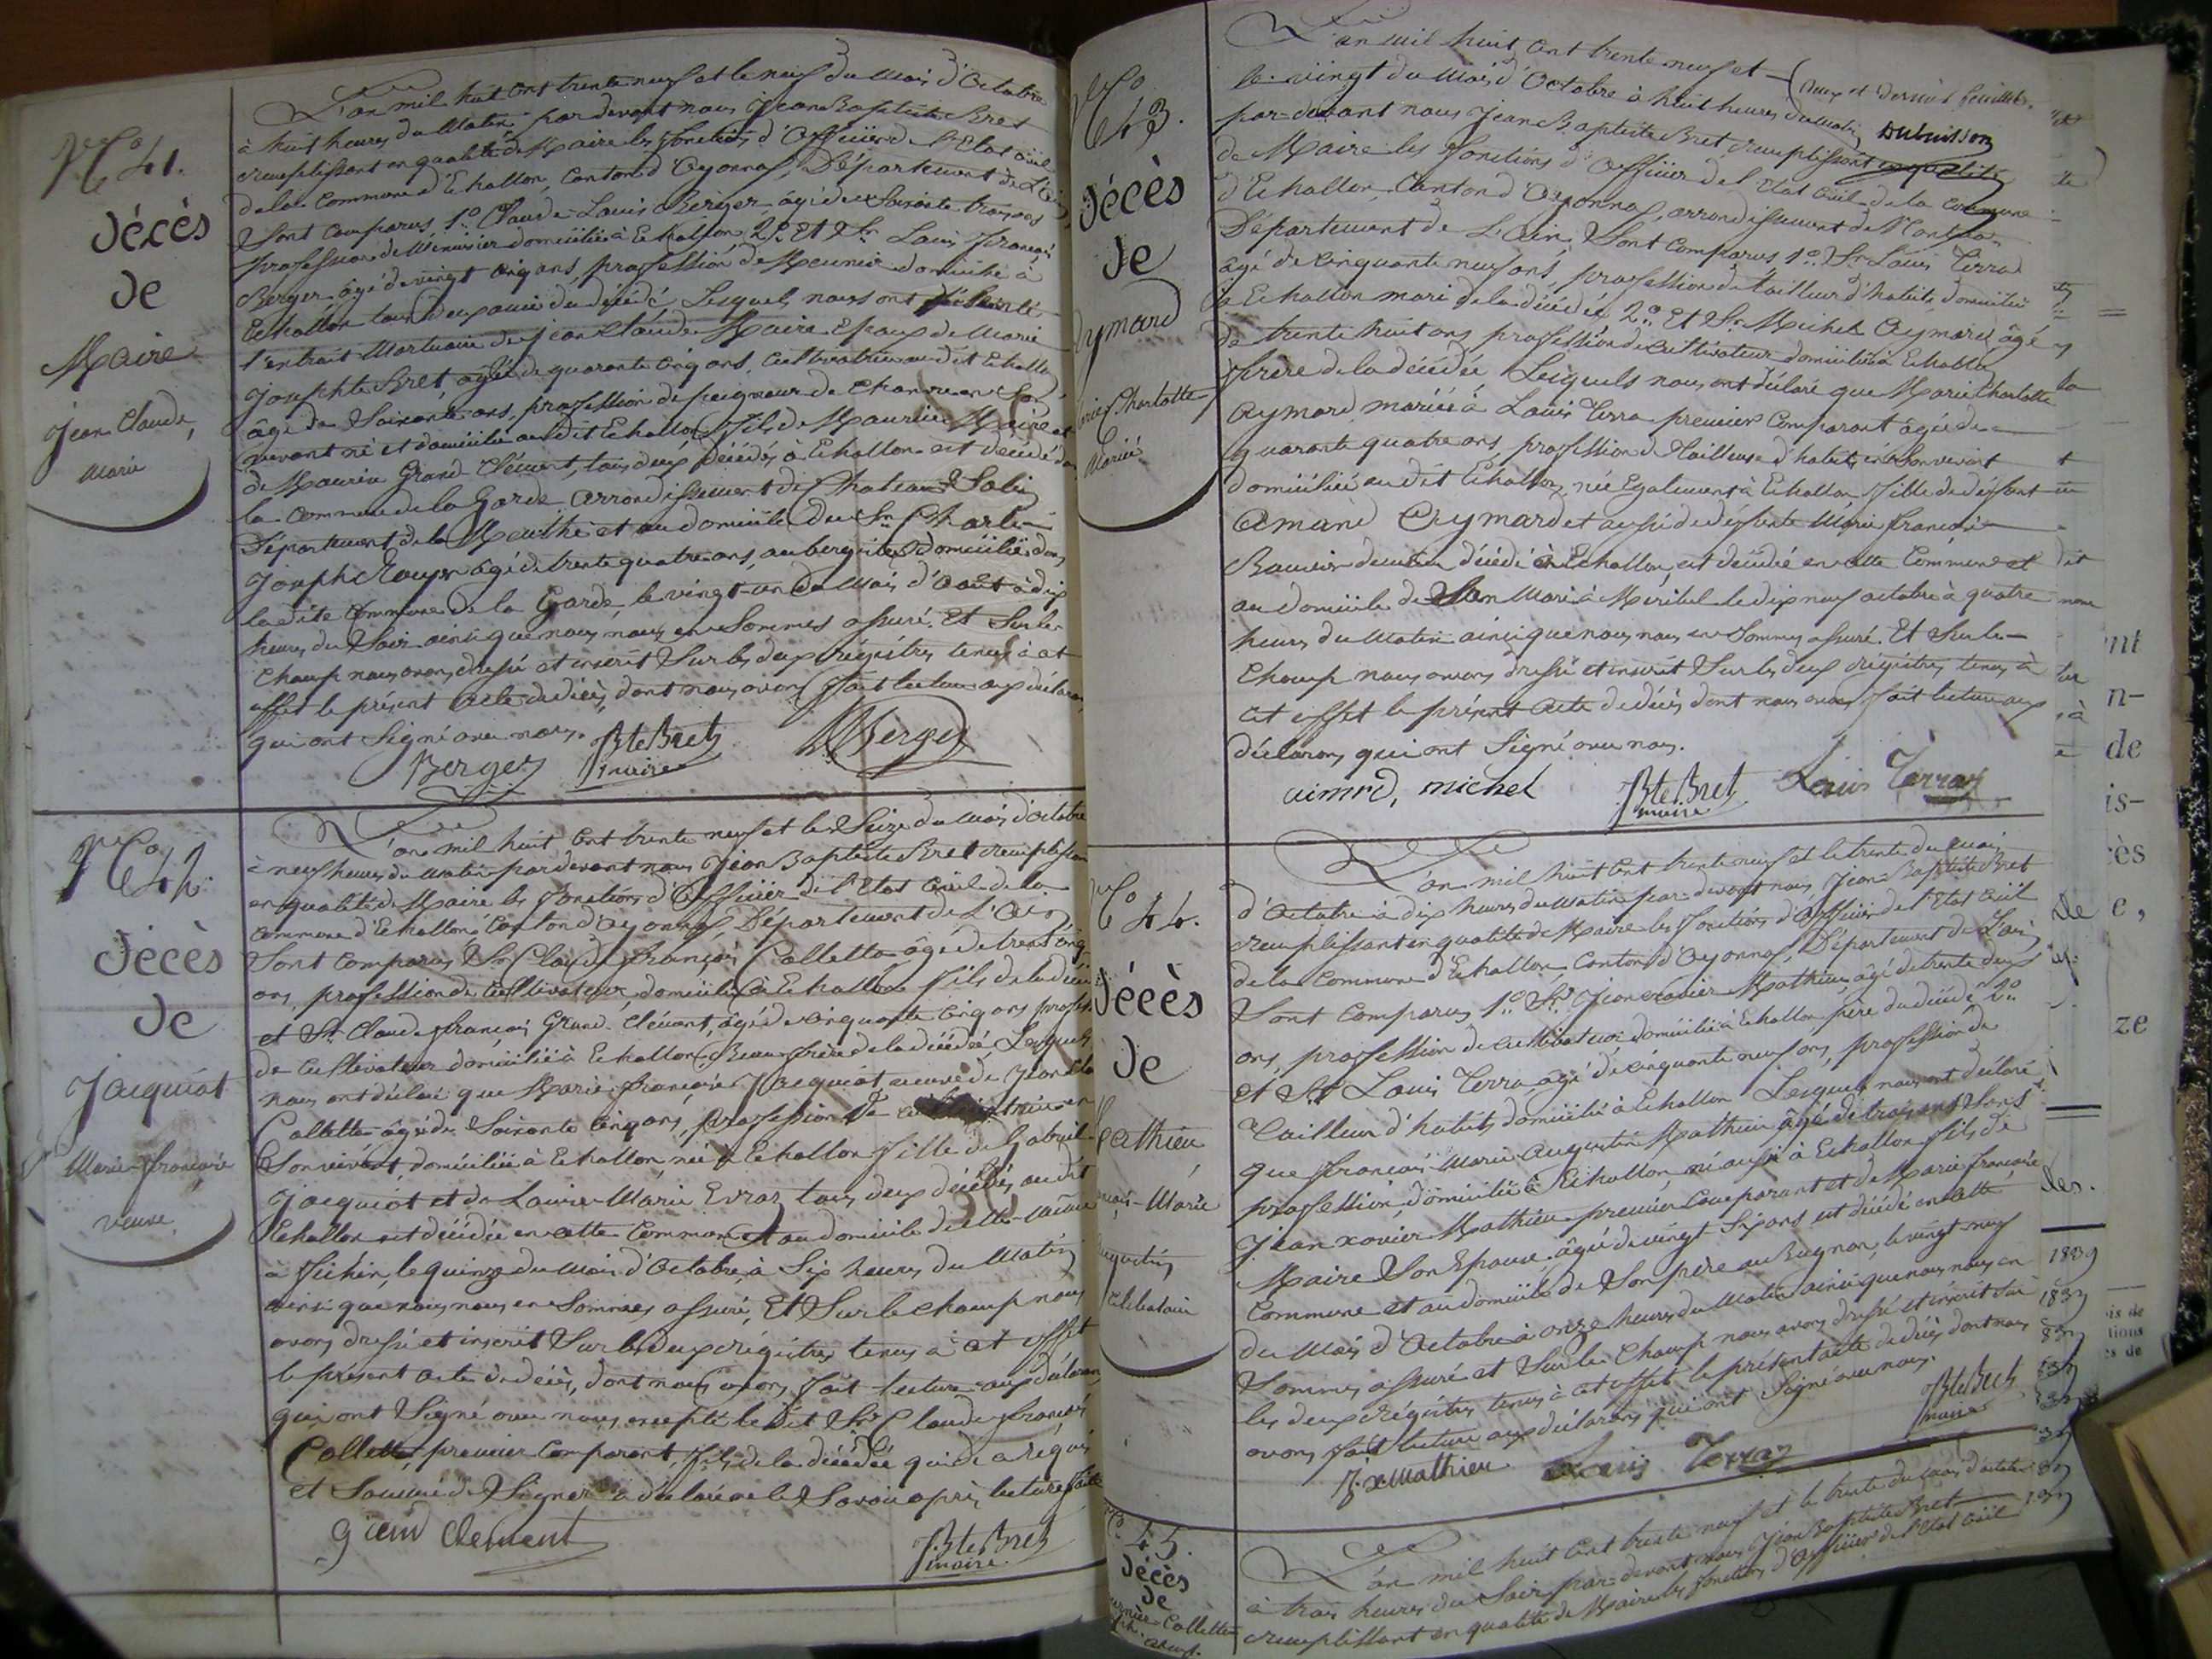 N° 41.
Décès
de
Maire
Jean Claude,
Marié
L'an mil huit cent trente neuf et le neuf du Mois d'Octobre
à huit heures du Matin par devant nous Jean Baptiste Bret
remplissant en qualité de Maire les fonctions d'Officier de l'Etat Civil
de la Commune d'Echallon, Canton d'Oyonnax, Département de l'Ain,
Sont comparus, 1° Claude Louis Berger, âgé de Soixante trois ans
profession de Menuisier domicilié à Echallon, 2° Et Sr Louis François
Berger âgé de vingt cinq ans, profession de Meunier domicilié à
Echallon tous deux du décédé, Lesquels nous ont
l'extrait Mortuaire de Jean Claude Maire Epoux de Marie
Josephte Bret, âgée de quarante cinq ans, Cultivatrice au dit Echallon
âgé de Soixante ans, profession de peigneur de Chanvre en Son
vivant né et domicilié au dit Echallon, Fils de Maurice Maire et
de Maurice Grand Clément, tous deux Décédés à Echallon est décédé dans
la Commune de la Garde Arrondissement de Chateau-Salin
Département de la Meurthe et au domicile du Sr Charle-
Joseph Royer âgé de trente quatre ans, aubergiste domicilié dans
la dite Commune de la Garde le vingt-un du Mois d'Août à dix
heures du Soir ainsi que nous nous en Sommes assuré. Et Sur le
Champ nous avons dressé et inscrit Sur les deux régistres tenus à cet
effet le présent Acte de décès, dont nous avons fait lecture aux déclarans,
qui ont Signé avec nous.
Berger
Bte Bret
maire
Berger
N° 42.
Décès
de
Jacquiot
Marie-françoise
veuve
L'an mil huit cent trente neuf et le Seize du Mois d'Octobre
à neuf heures du Matin par devant nous Jean Baptiste Bret remplissant
en qualité de Maire les fonctions d'Officier de l'Etat Civil de la
Commune d'Echallon Canton d'Oyonnax Département de l'Ain
Sont comparus Sr Claude François Collette âgé de trente cinq
ans, profession de Cultivateur, domicilié à Echallon Fils de la décédée
et Sr Claude françois Grand-Clément, âgé de cinquante cinq ans profession
de Cultivateur domicilié à Echallon Beau-frère de la décédée, Lesquels
nous ont déclaré que Marie françoise Jacquiot veuve de Jean
Collette âgée de Soixante cinq ans, profession de Cultivatrice en
Son vivant domiciliée à Echallon née à Echallon fille de
Jacquiot et de Louise-Marie Evraz, tous deux décédés au dit
Echallon est décédée en cette Commune et au domicile d'elle-même
à , le quinze du Mois d'Octobre, à Six heures du Matin
ainsi que nous nous en Sommes assuré, Et Sur le Champ nous
avons dressé et inscrit Sur les deux régistres tenus à cet effet
le présent Acte de décès, dont nous avons fait lecture aux déclarans,
qui ont Signé avec nous, excepté le dit Sr Claude François
Collette, premier Comparant, fils de la décédée qui de ce réquis
et Sommé de Signer a déclaré ne le Savoir après lecture faite
grand Clement
Bte Bret
maire
N° 43.
Décès
de
Aymard
Marie Charlotte
Mariée
L'an mil huit cent trente neuf et
le vingt du Mois d'Octobre à huit heures du Matin
Deux et dernier feuillet.
Dubuisson
par-devant nous Jean Baptiste Bret remplissant en qualité
de Maire les fonctions d'Officier de l'Etat Civil de la Commune
d'Echallon, Canton d'Oyonnax, arrondissement de Nantua
Département de l'Ain, Sont Comparus 1° Sr Louis Terraz
âgé de cinquante neuf ans, profession de tailleur d'habits domicilié
à Echallon mari de la décédée 2° Et Sr Michel Aymard âgé
de trente huit ans profession de Cultivateur domicilié à Echallon
frère de la décédée, Lesquels nous ont déclaré que Marie Charlotte
Aymard, mariée à Louis Terra premier Comparant âgée de
quarante quatre ans, profession de Tailleuse d'habits en Son vivant
domiciliée au dit Echallon, née Egalement à Echallon, fille de défunt
Amand Aymard et aussi de défunte Marie françoise
décédé à Echallon, est décédée en cette Commune et
au domicile de Son Mari à Miribel le dix neuf octobre à quatre
heures du Matin ainsi que nous nous en Sommes assuré. Et Sur le
Champ nous avons dressé et inscrit Sur les deux régistres tenus à
cet effet le présent Acte de décès dont nous avons fait lecture aux
déclarans, qui ont Signé avec nous.
aimard, michel
Bte Bret
maire
Louis Terraz
N° 44.
Décès
de
Mathieu
-Marie
Augustin
Célibataire
L'an mil huit cent trente neuf et le trente du mois
d'Octobre à dix heures du matin par-devant nous Jean-Baptiste Bret
remplissant en qualité de Maire les fonctions d'Officier de l'Etat Civil
de la Commune d'Echallon, Canton d'Oyonnax, Département de l'Ain
Sont Comparus 1° Sr Jean xavier Mathieu, âgé de trente deux
ans, profession de Cultivateur domicilié à Echallon père du décédé 2°
et Sr Louis Terra âgé de cinquante neuf ans, profession de
Tailleur d'habits, domicilié à Echallon Lesquels nous ont déclaré
que François Marie Augustin Mathieu âgé de trois ans Sans
profession, domicilié à Echallon, né aussi à Echallon fils de
Jean xavier Mathieu premier Comparant et de Marie Françoise
Maire Son Epouse âgée de vingt-Six ans est décédé en cette
Commune et au domicile de Son père au Bugnon, le vingt neuf
du Mois d'Octobre à onze heures du Matin ainsi que nous nous en
Sommes assuré et Sur le Champ nous avons dressé et inscrit Sur
les deux régistres tenus à cet effet le présent acte de décès dont nous
avons fait lecture aux déclarans qui ont Signé avec nous.
J. x Mathieu
Louis Terraz
Bte Bret
maire
N° 45.
Décès
de
Collette
L'an mil huit cent trente neuf et le trente du mois d'octobre
à trois heures du Soir par-devant nous Jean Baptiste Bret
remplissant en qualité de Maire les fonctions d'Officier de l'Etat Civil
1839
1839